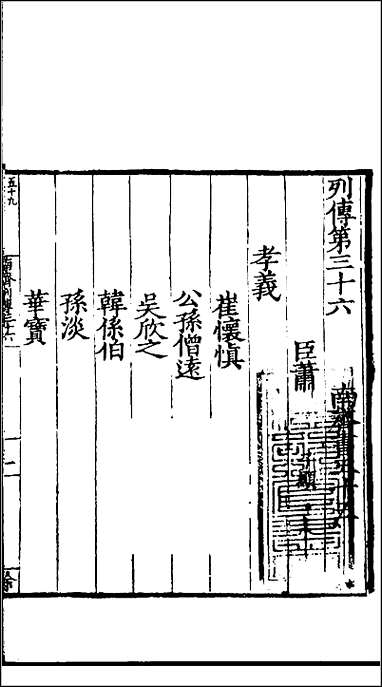 列傳第三十六
南齊書五十五
臣蕭子顯
孝義
崔懷慎
公孫僧遠
吳欣之
韓係伯
孫淡
華寶
五十九
南齊列傳三十六
一